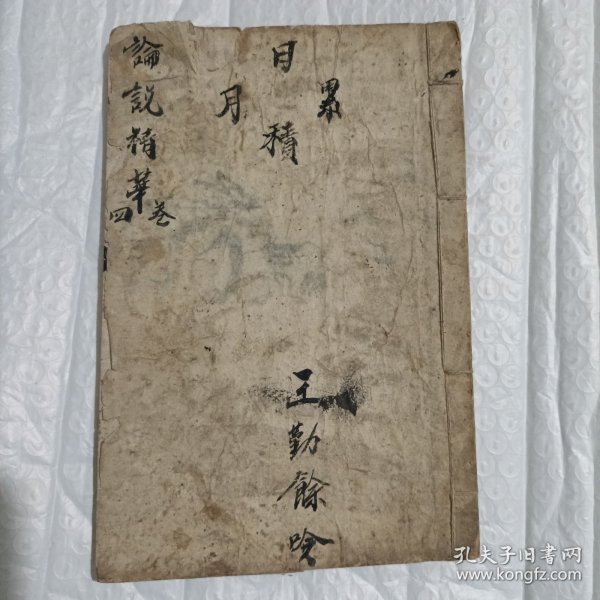 論説精華
卷四
日
月
累
積
王勤餘
孔夫子旧书网
www.kongfz.com